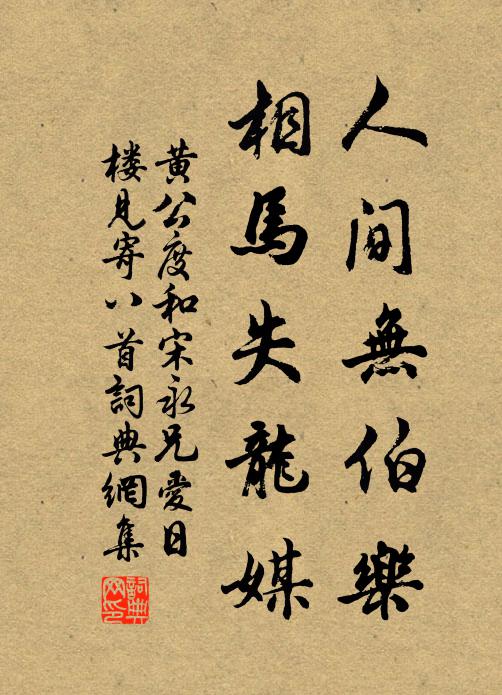 人間無伯樂
相馬失龍媒
黄公度和宋永兄愛日
楼見寄八首詞典網集
詞典
网印